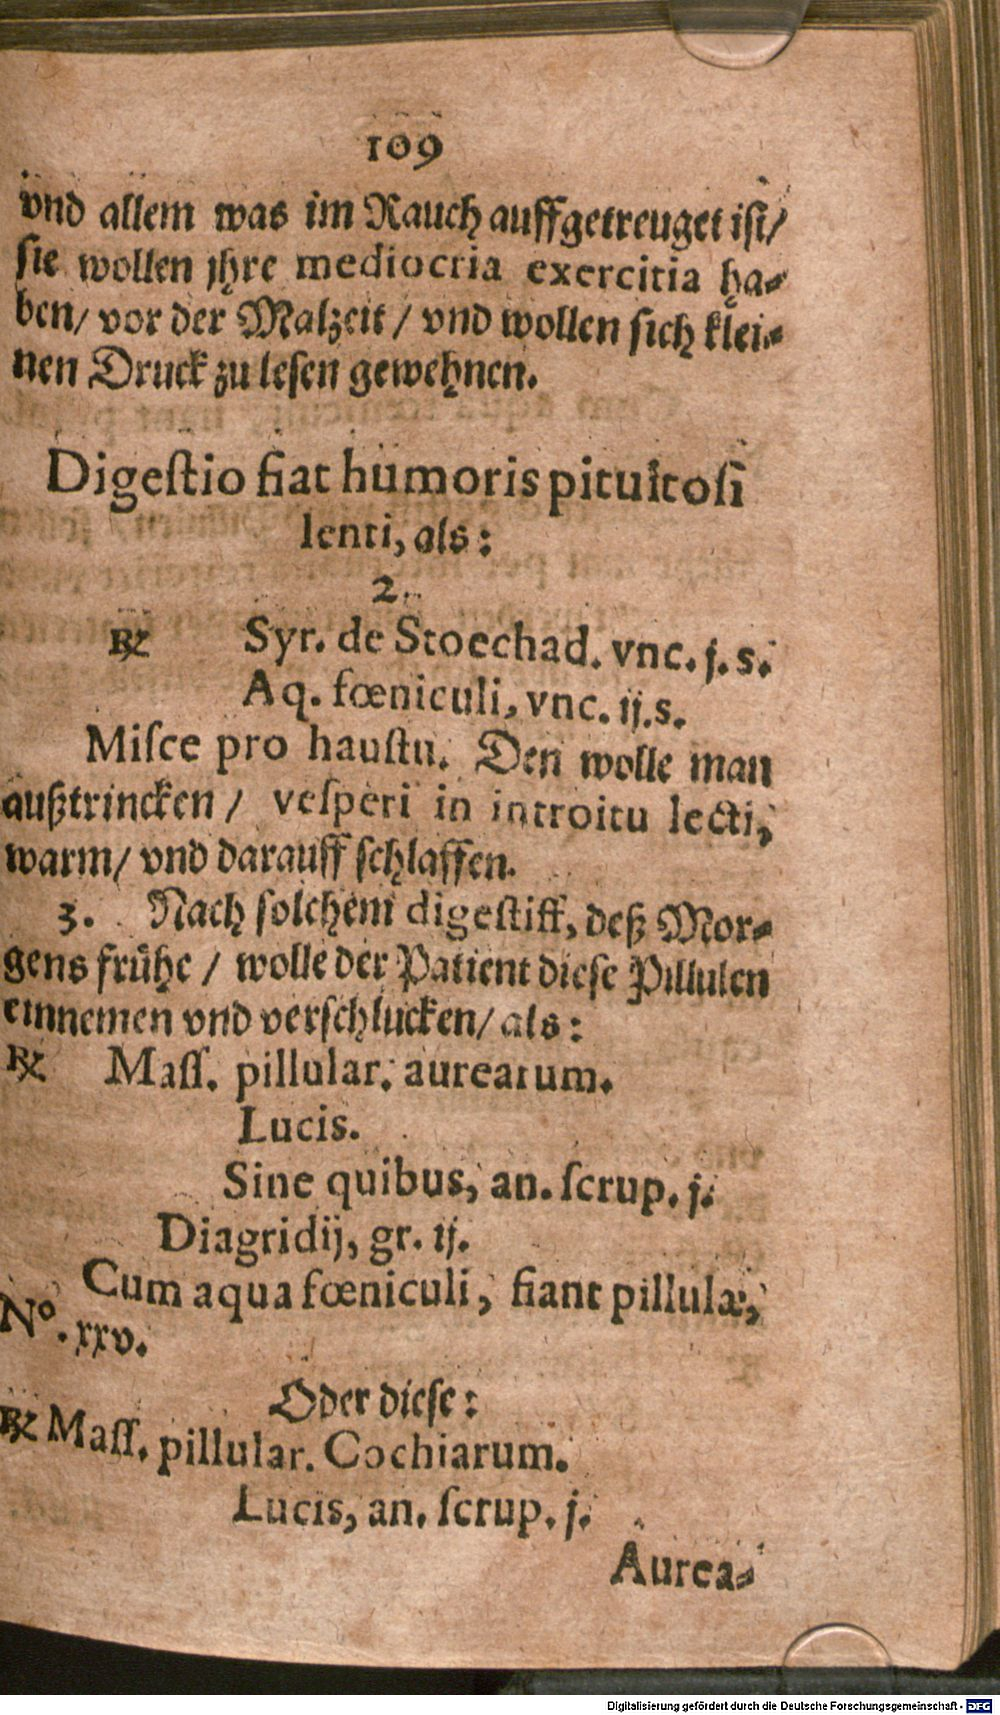 109
vnd allem was im Rauch auffgetreuget ist/
sie wollen jhre mediocria exercitia ha-
ben/ vor der Malzeit / vnd wollen sich klei-
nen Druck zu lesen gewehnen.
Digeſtio fiat humoris pituitoſi
lenti, als:
2.
℞ Syr. de Stoechad. vnc. j. s.
Aq. fœniculi, vnc. ij. s.
Miſce pro hauſtu. Den wolle man
außtrincken / veſperi in introitu lecti,
warm/ vnd darauff ſchlaffen.
3. Nach ſolchem digeſtiff, deß Mor-
gens frühe / wolle der Patient dieſe Pillulen
einnemen vnd verſchlucken/ als:
℞ Maſſ. pillular. aurearum.
Lucis.
Sine quibus, an. ſcrup. j.
Diagridij, gr. ij.
Cum aqua fœniculi, fiant pillulæ,
Nº. xxv.
Oder dieſe:
℞ Maſſ. pillular. Cochiarum.
Lucis, an. ſcrup. j.
Aurea-
Digitalisierung gefördert durch die Deutsche Forschungsgemeinschaft - DFG